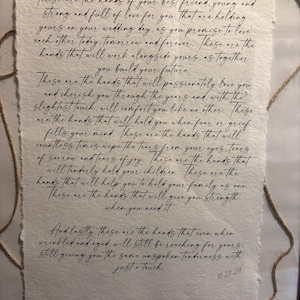 These are the hands of your best friend, young and
strong and full of love for you, that are holding
yours on your wedding day, as you promise to love
each other today, tomorrow and forever. These are the
hands that will work alongside yours, as together
you build your future.
These are the hands that will passionately love you
and cherish you through the years and with the
slightest touch, will comfort you like no other. These
are the hands that will hold you when fear or grief
fills your mind. These are the hands that will
countless times wipe the tears from your eyes, tears
of sorrow and tears of joy. These are the hands that
will tenderly hold your children. These are the
hands that will help you to hold your family as one.
These are the hands that will give you strength
when you need it.
And lastly, these are the hands that even when
wrinkled and aged, will still be reaching for yours,
still giving you the same unspoken tenderness with
just a touch.